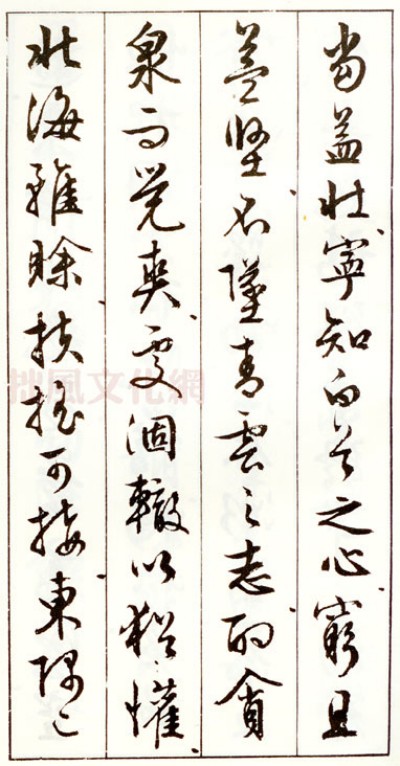 當益壯寧知白首之心窮且
益堅不墜青雲之志酌貪
泉而覺爽處涸轍以猶懽
北海雖賒扶搖可接東隅已
拙風文化網